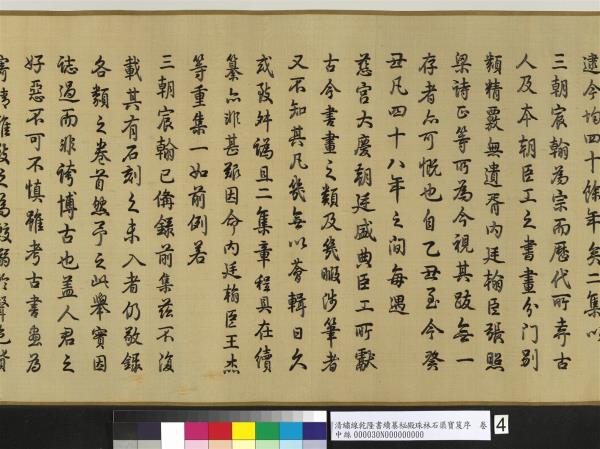 逮今均四十餘年矣二集以
三朝宸翰為宗而歷代所弆古
人及本朝臣工之書畫分門別
類精覈無遺胥內廷翰臣張照
梁詩正等所為今視其跋無一
存者亦可慨也自乙丑至今癸
丑凡四十八年之間每遇
慈宮大慶朝廷盛典臣工所獻
古今書畫之類及幾暇涉筆者
又不知其凡幾無以薈輯日久
或致舛譌且二集章程具在續
纂亦非甚艱因命內廷翰臣王杰
等重集一如前例若
三朝宸翰已備錄前集茲不復
載其有石刻之未入者仍敬錄
各類之卷首然予之此舉實因
誌過而非誇博古也蓋人君之
好惡不可不慎雖考古書畫為
寄情雅致之為較溺於聲色貨
清繡線乾隆書續纂秘殿珠林石渠寶笈序 卷
中絲 000030N000000000
4